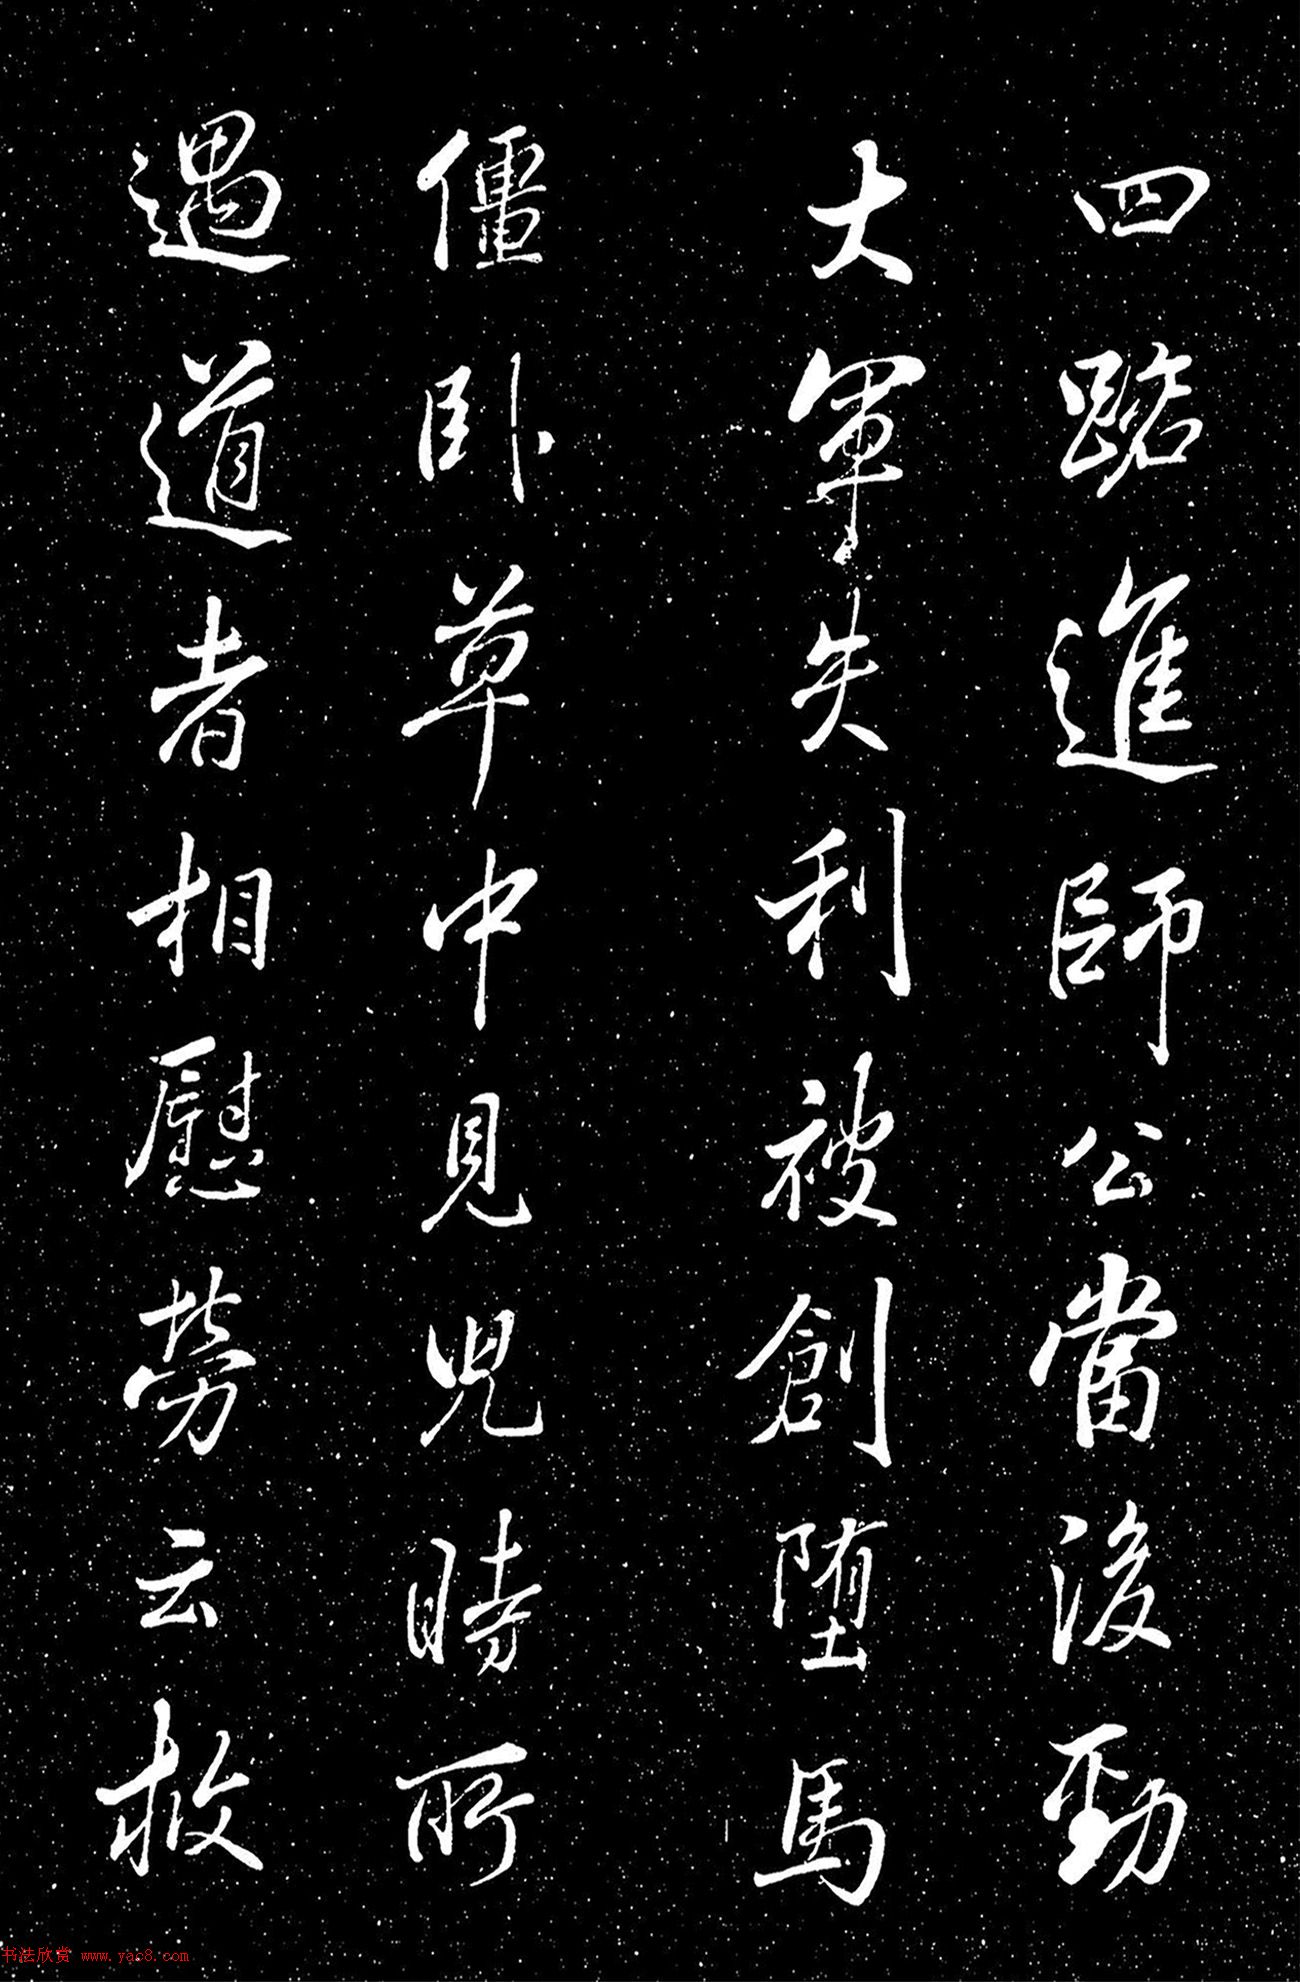 四踣進師公當後勁
大軍失利被創堕馬
僵卧草中見兒時所
遇道者相慰勞云救
书法欣赏 www.yac8.com